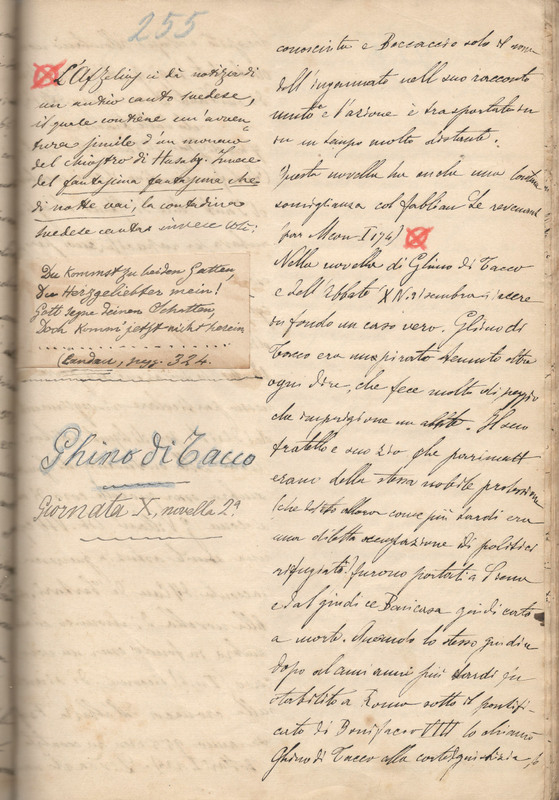 255
L'Afzelius ci dà notizia di
un antico canto svedese,
il quale contiene un'avven-
tura simile d'un monaco
del chiostro di Husaby. Invece
del fantasima fantasima che
di notte vai, la contadina
svedese canta invece così:
Du kommst zu beiden Gatten,
Du Herzgeliebter mein!
Gott segne deinen Schatten,
Doch komm jetzt nicht herein
. . . . . . . . . . . . . .
(Landau, pag. 324.
Ghino di Tacco
Giornata X, novella 2ª
conosciuta e Boccaccio solo il nome
dell'ingannato nell suo racconto
e l'azione è trasportata in
in un tempo molto distante.
Questa novella ha anche una
somiglianza col fabliau Le revenant
(par Meon I 174)
Nella novella di Ghino di Tacco
e dell'Abbate X N. 2 sembra essere
in fondo un caso vero. Ghino di
Tacco era un pirato temuto oltre
ogni dire, che fece molto
che imprigione un abate. Il suo
fratello e suo zio che parimenti
erano della stessa nobile professione
(che allora come più tardi era
una diletta occupazione di politici
rifugiati) furono portati a Siena
e dal giudice Benincasa giudicato
a morte. Quando lo stesso giudice
dopo alcuni anni più tardi fu
stabilito a Roma sotto il pontifi-
cato di Bonifacio VIII lo chiamò
Ghino di Tacco alla corte